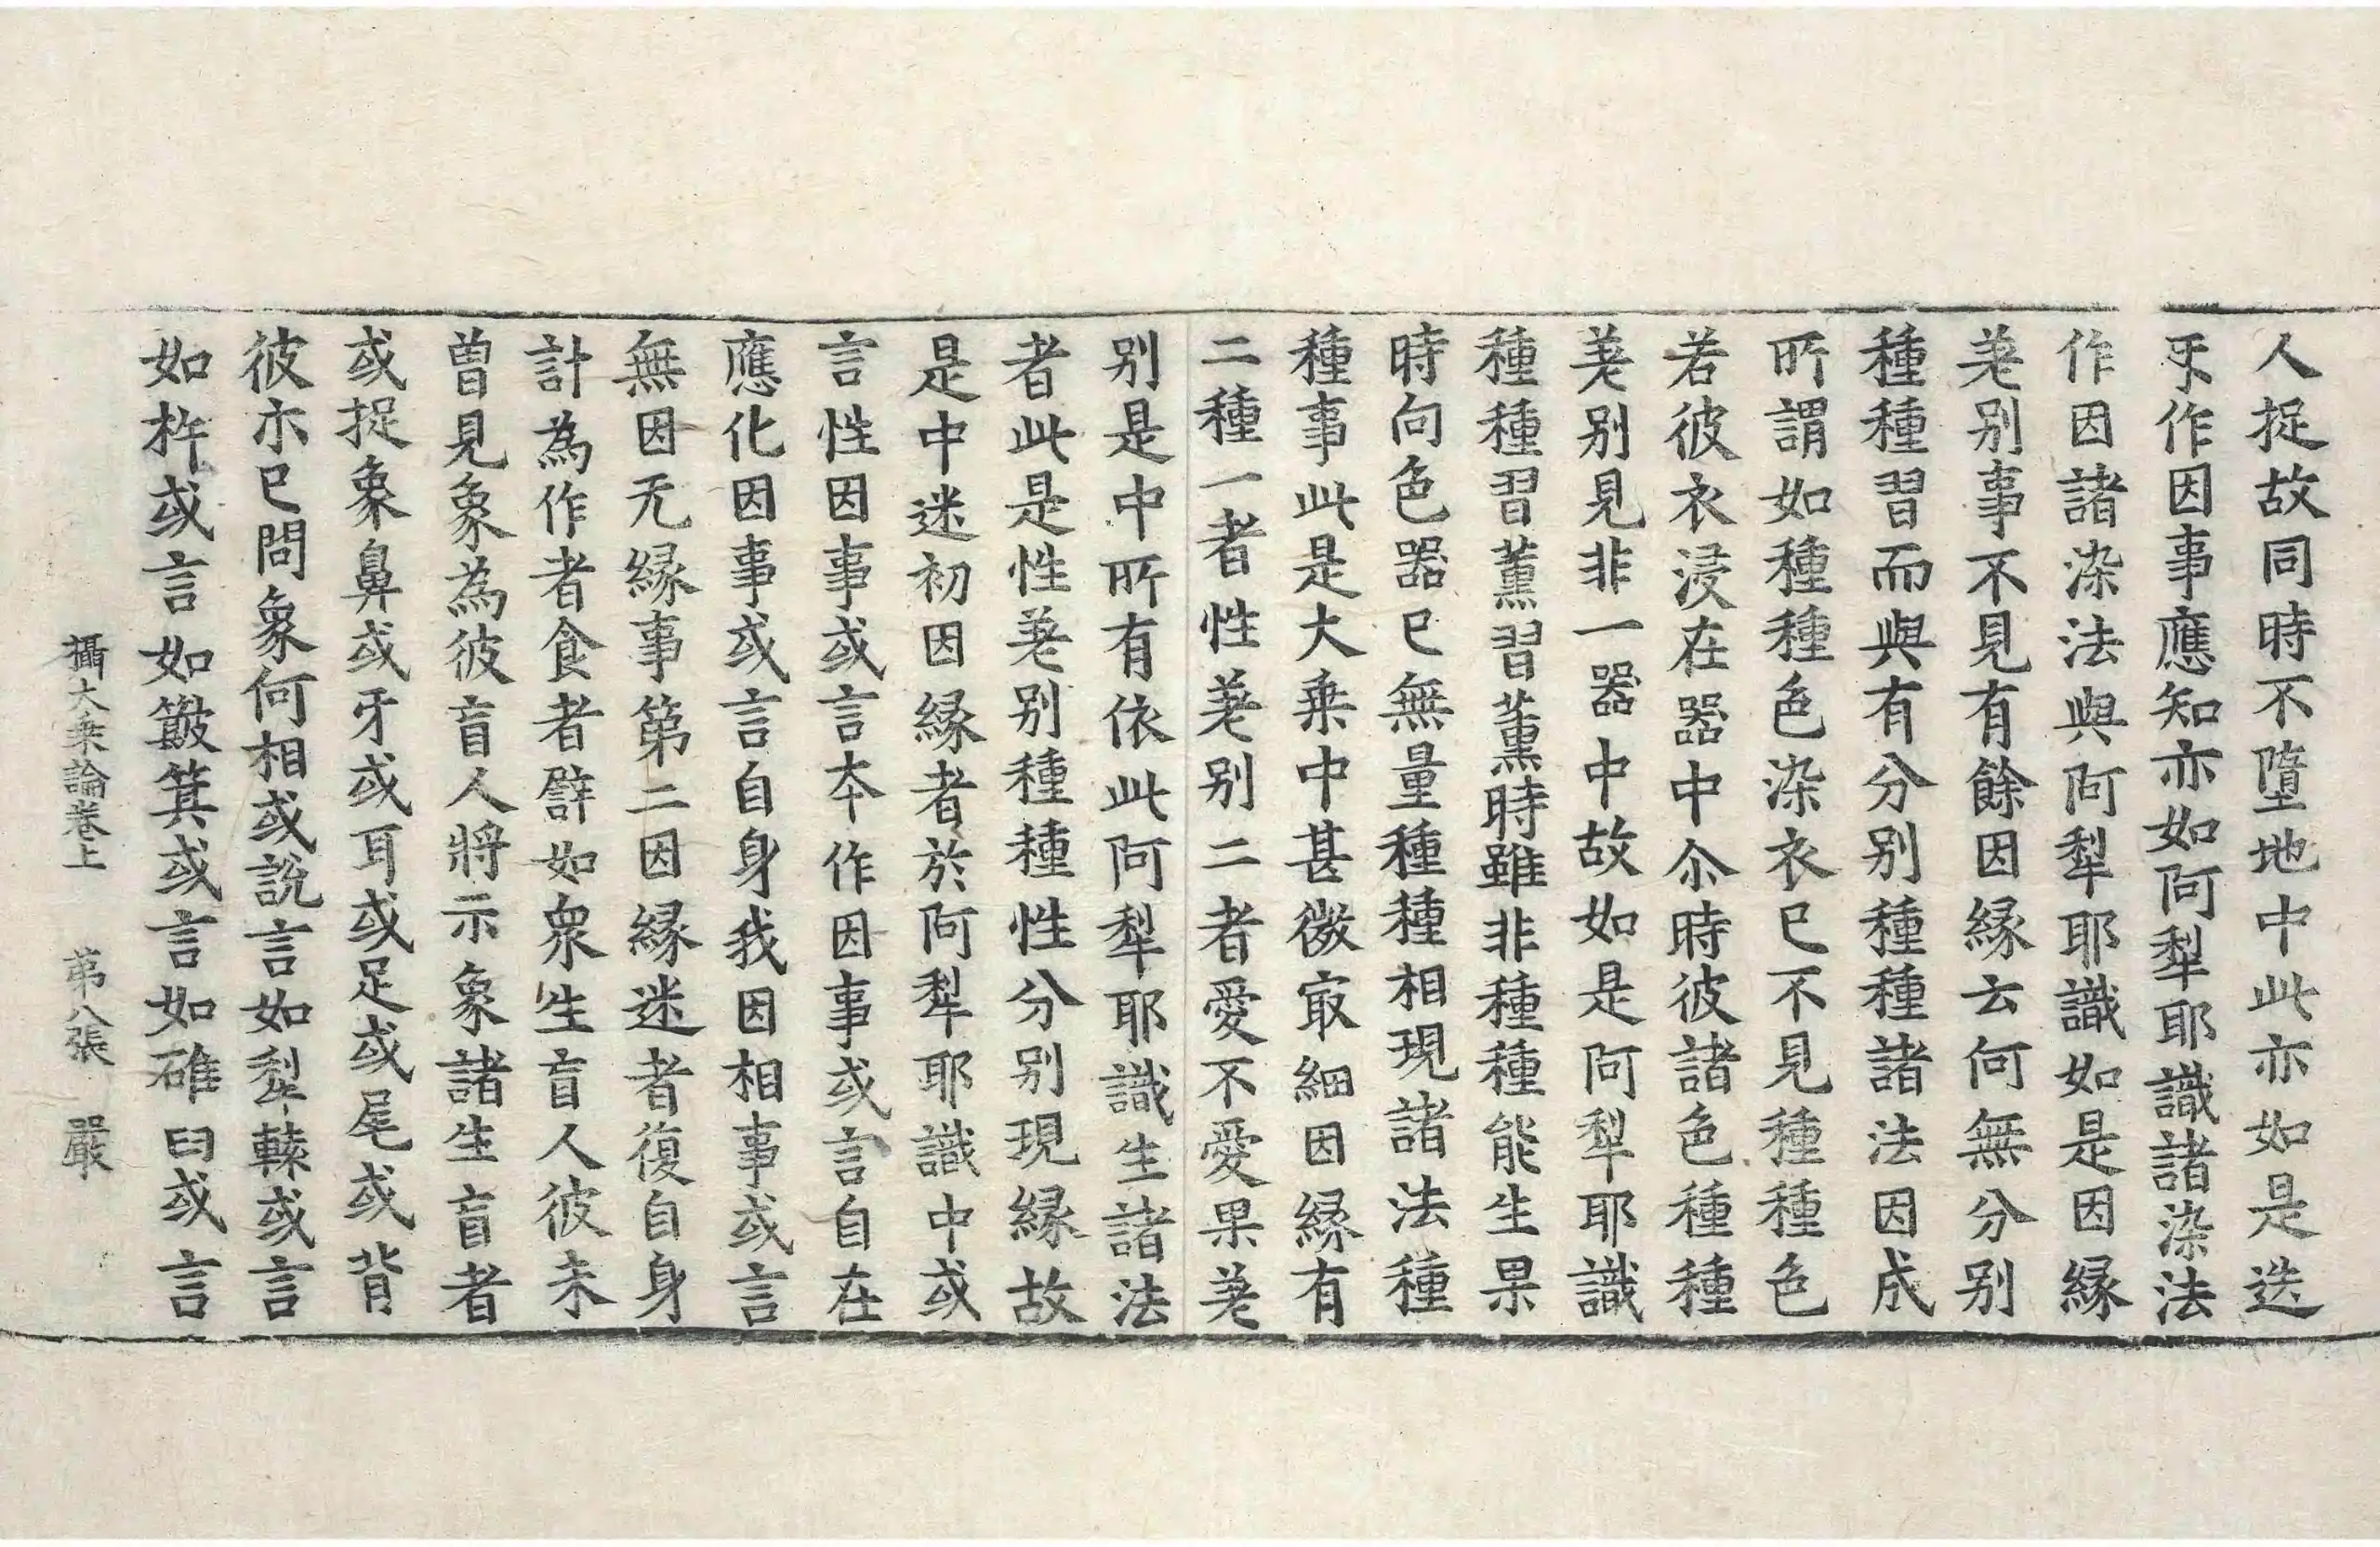 人捉故同時不墮地中此亦如是迭
㸦作因事應知亦如阿犁耶識諸染法
作因諸染法與阿犁耶識如是因縁
差别事不見有餘因縁云何無分别
種種習而與有分别種種諸法因成
所謂如種種色染衣已不見種種色
若彼衣浸在器中尒時彼諸色種種
差别見非一器中故如是阿犁耶識
種種習薰習薰時雖非種種能生果
時向色器已無量種種相現諸法種
種事此是大乗中甚微㝡細因縁有
二種一者性差别二者愛不愛果差
别是中所有依此阿犁耶識生諸法
者此是性差别種種性分别現縁故
是中迷初因縁者於阿犁耶識中或
言性因事或言本作因事或言自在
應化因事或言自身我因相事或言
無因无縁事第二因縁迷者復自身
計為作者食者譬如衆生盲人彼未
曽見象為彼盲人將示象諸生盲者
或捉象鼻或牙或耳或足或尾或背
彼亦已問象何相或説言如犁轅或言
如杵或言如簸箕或言如碓臼或言
攝大乗論卷上 第八張 嚴